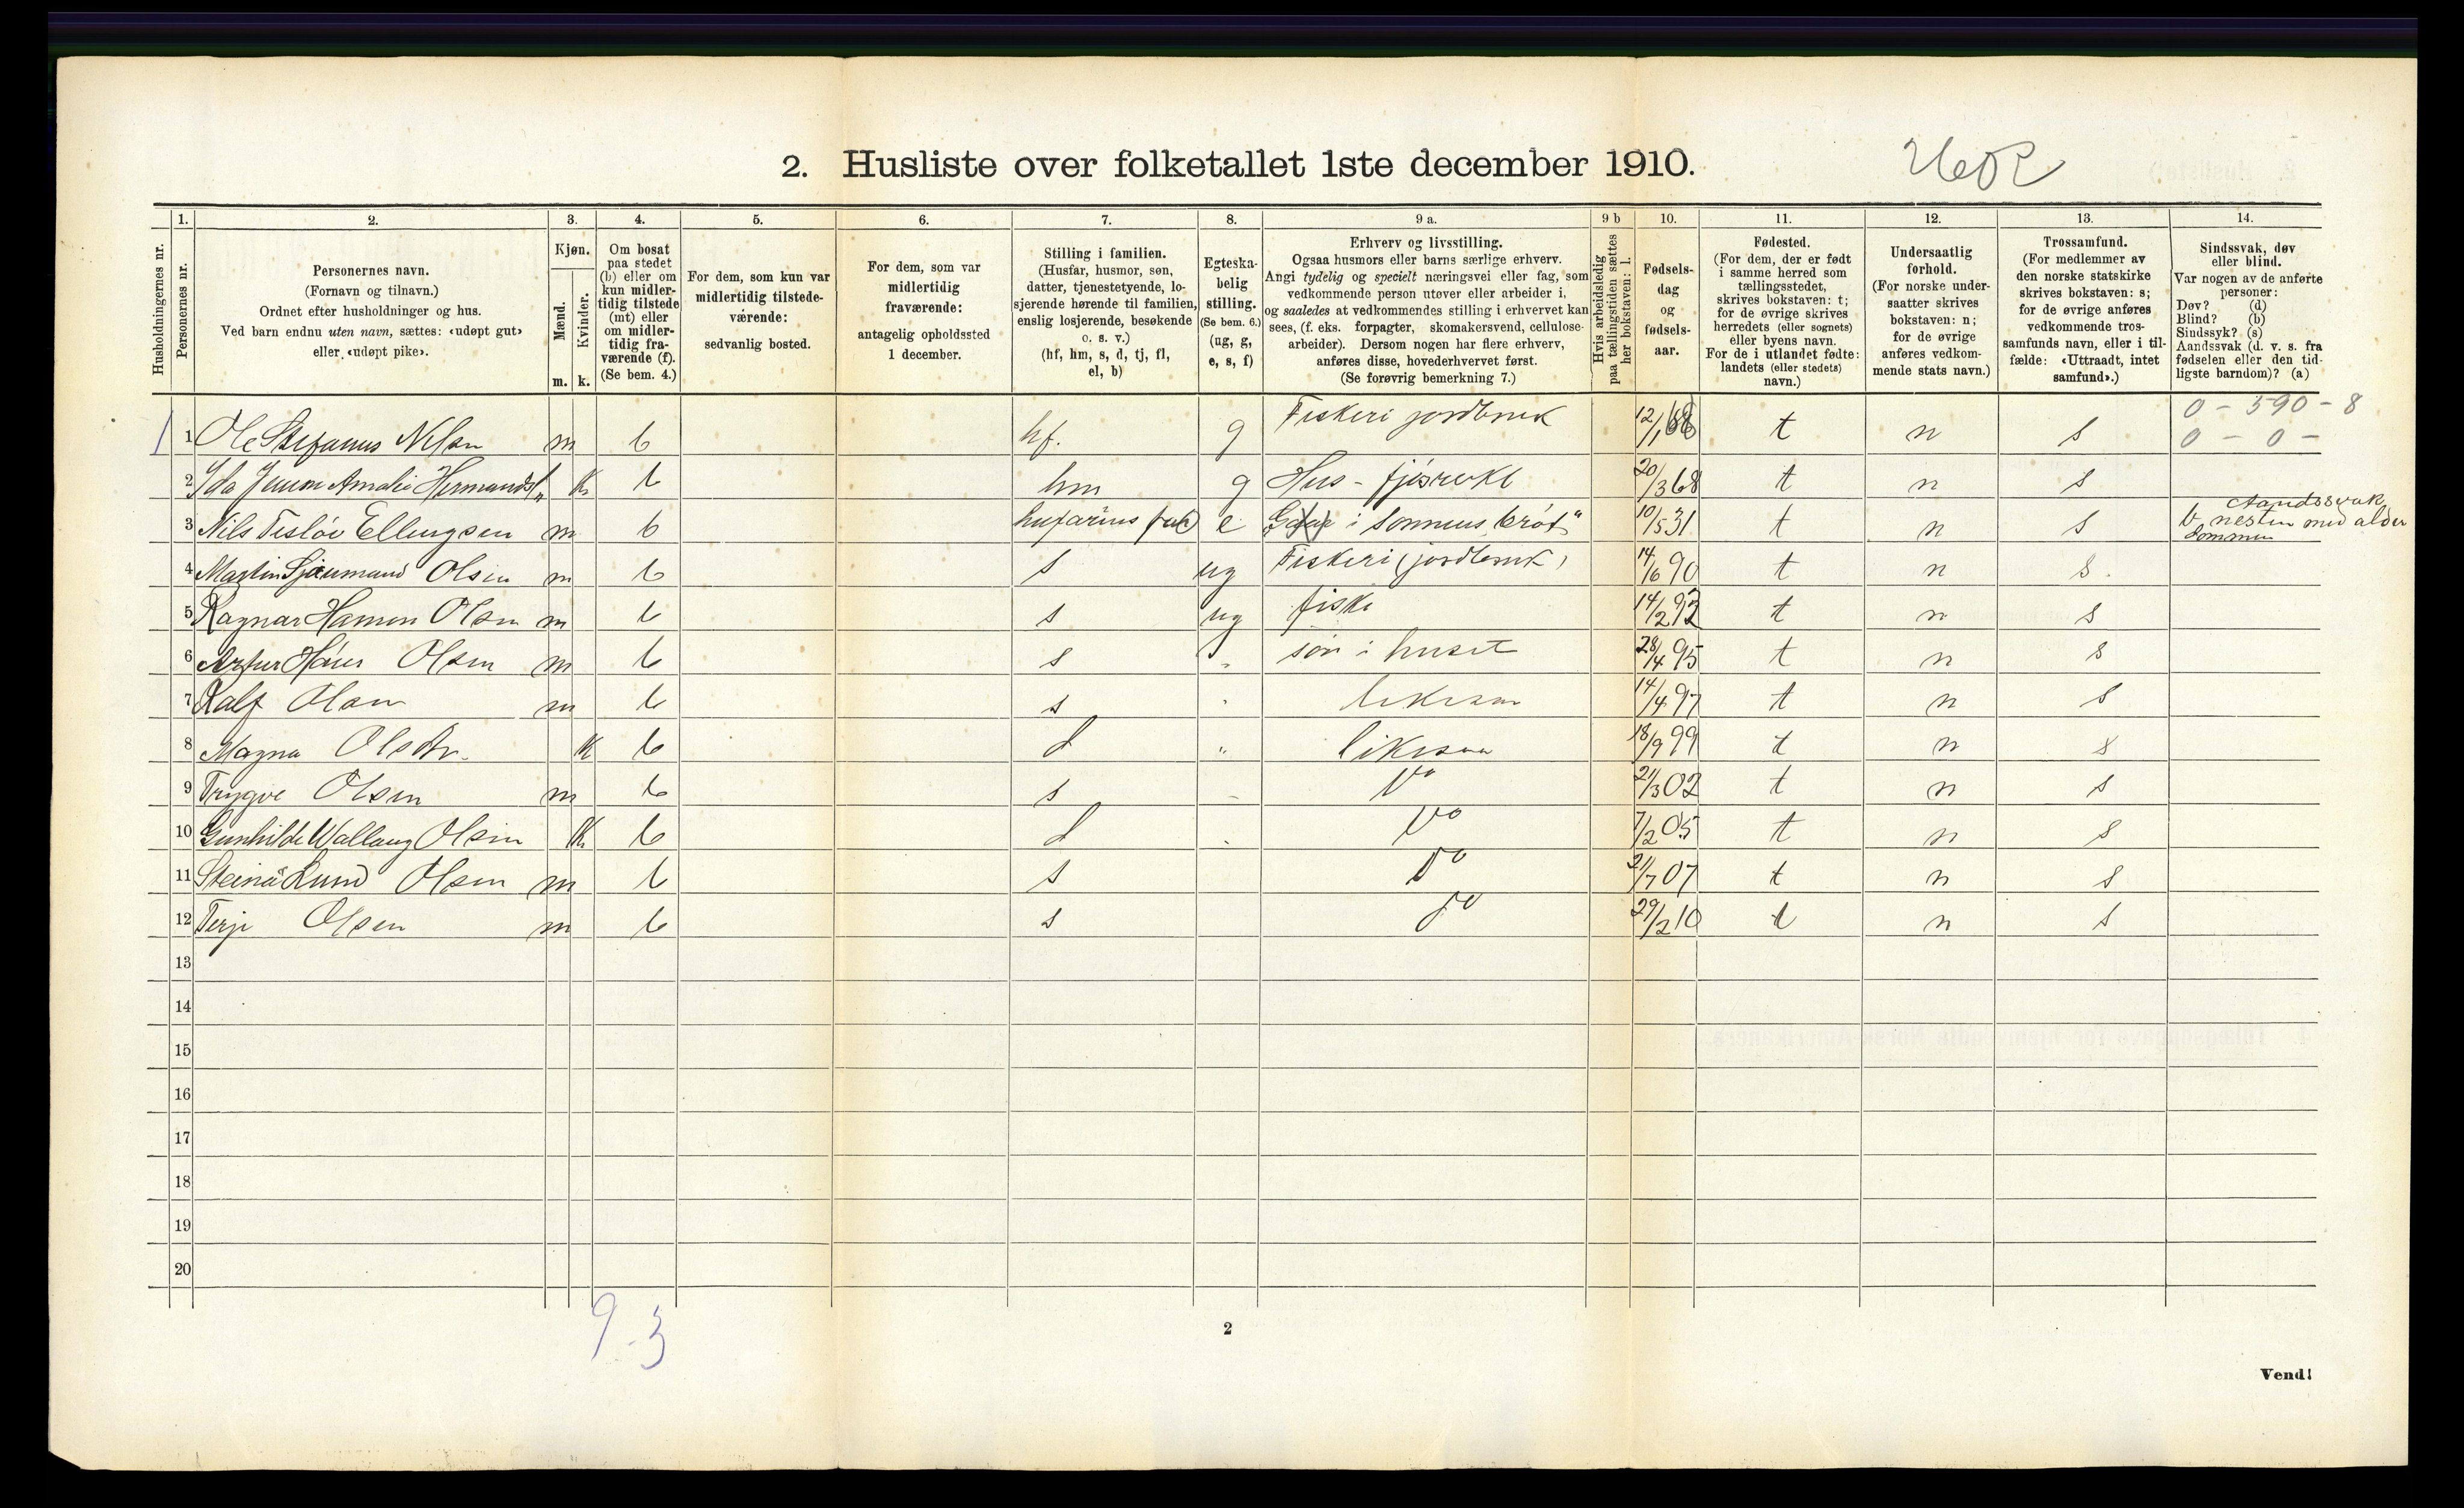 2. Husliste over folketallet 1ste december 1910.
1. 2. 3. 4. 5. 6. 7. 8. 9 a. 9 b 10. 11. 12. 13. 14.
Husholdningernes nr.
Personernes nr.
Personernes navn.
(Fornavn og tilnavn.)
Ordnet efter husholdninger og hus.
Ved barn endnu uten navn, sættes: «udøpt gut»
eller «udøpt pike».
Kjøn.
Mænd.
Kvinder.
m. k.
Om bosat
paa stedet
(b) eller om
kun midler-
tidig tilstede
(mt) eller
om midler-
tidig fra-
værende (f).
(Se bem. 4.)
For dem, som kun var
midlertidig tilstede-
værende:
sedvanlig bosted.
For dem, som var
midlertidig
fraværende:
antagelig opholdssted
1 december.
Stilling i familien.
(Husfar, husmor, søn,
datter, tjenestetyende, lo-
sjerende hørende til familien,
enslig losjerende, besøkende
o. s. v.)
(hf, hm, s, d, tj, fl,
el, b)
Egteska-
belig
stilling.
(Se bem. 6.)
(ug, g,
e, s, f)
Erhverv og livsstilling.
Ogsaa husmors eller barns særlige erhverv.
Angi tydelig og specielt næringsvei eller fag, som
vedkommende person utøver eller arbeider i,
og saaledes at vedkommendes stilling i erhvervet kan
sees, (f. eks. forpagter, skomakersvend, cellulose-
arbeider). Dersom nogen har flere erhverv,
anføres disse, hovederhvervet først.
(Se forøvrig bemerkning 7.)
Hvis arbeidsledig
paa tællingstiden sættes
her bokstaven: l.
Fødsels-
dag
og
fødsels-
aar.
Fødested.
(For dem, der er født
i samme herred som
tællingsstedet,
skrives bokstaven: t;
for de øvrige skrives
herredets (eller sognets)
eller byens navn.
For de i utlandet fødte:
landets (eller stedets)
navn.)
Undersaatlig
forhold.
(For norske under-
saatter skrives
bokstaven: n;
for de øvrige
anføres vedkom-
mende stats navn.)
Trossamfund.
(For medlemmer av
den norske statskirke
skrives bokstaven: s;
for de øvrige anføres
vedkommende tros-
samfunds navn, eller i til-
fælde: «Uttraadt, intet
samfund».)
Sindssvak, døv
eller blind.
Var nogen av de anførte
personer:
Døv? (d)
Blind? (b)
Sindssyk? (s)
Aandssvak (d. v. s. fra
fødselen eller den tid-
ligste barndom)? (a)
0 - 590 - 8
0 - 0 -
1 1 Ole Stefanus Nilsen m b hf. g Fiskeri jordbruk 12/1 68 t n s
2 Ida Amalie k b hm g Hus- 20/3 68 t n s
Aandssvak
3 Nils Ellingsen m b e i 10/5 31 t n s b nesten med alder
dommen
4 Martin Olsen m b s ug Fiskeri (jordbruk) 14/6 90 t n s.
5 Ragnar Olsen m b s ug fiske 14/2 93 t n s
6 Olsen m b s - søn i huset 28/4 95 t n s
7 Ralf Olsen m b s - likesaa 14/4 97 t n s
8 Magna Olsdtr. k b d " likesaa 18/9 99 t n s
9 Trygve Olsen m b s - Do 21/3 02 t n s
10 Gunhilde Olsen k b d - Do 7/2 05 t n s
11 Lund Olsen m b s Do 21/7 07 t n s
12 Terje Olsen m b s do 29/2 10 t n s
13
14
15
16
17
18
19
20
9-3
2
Vend!